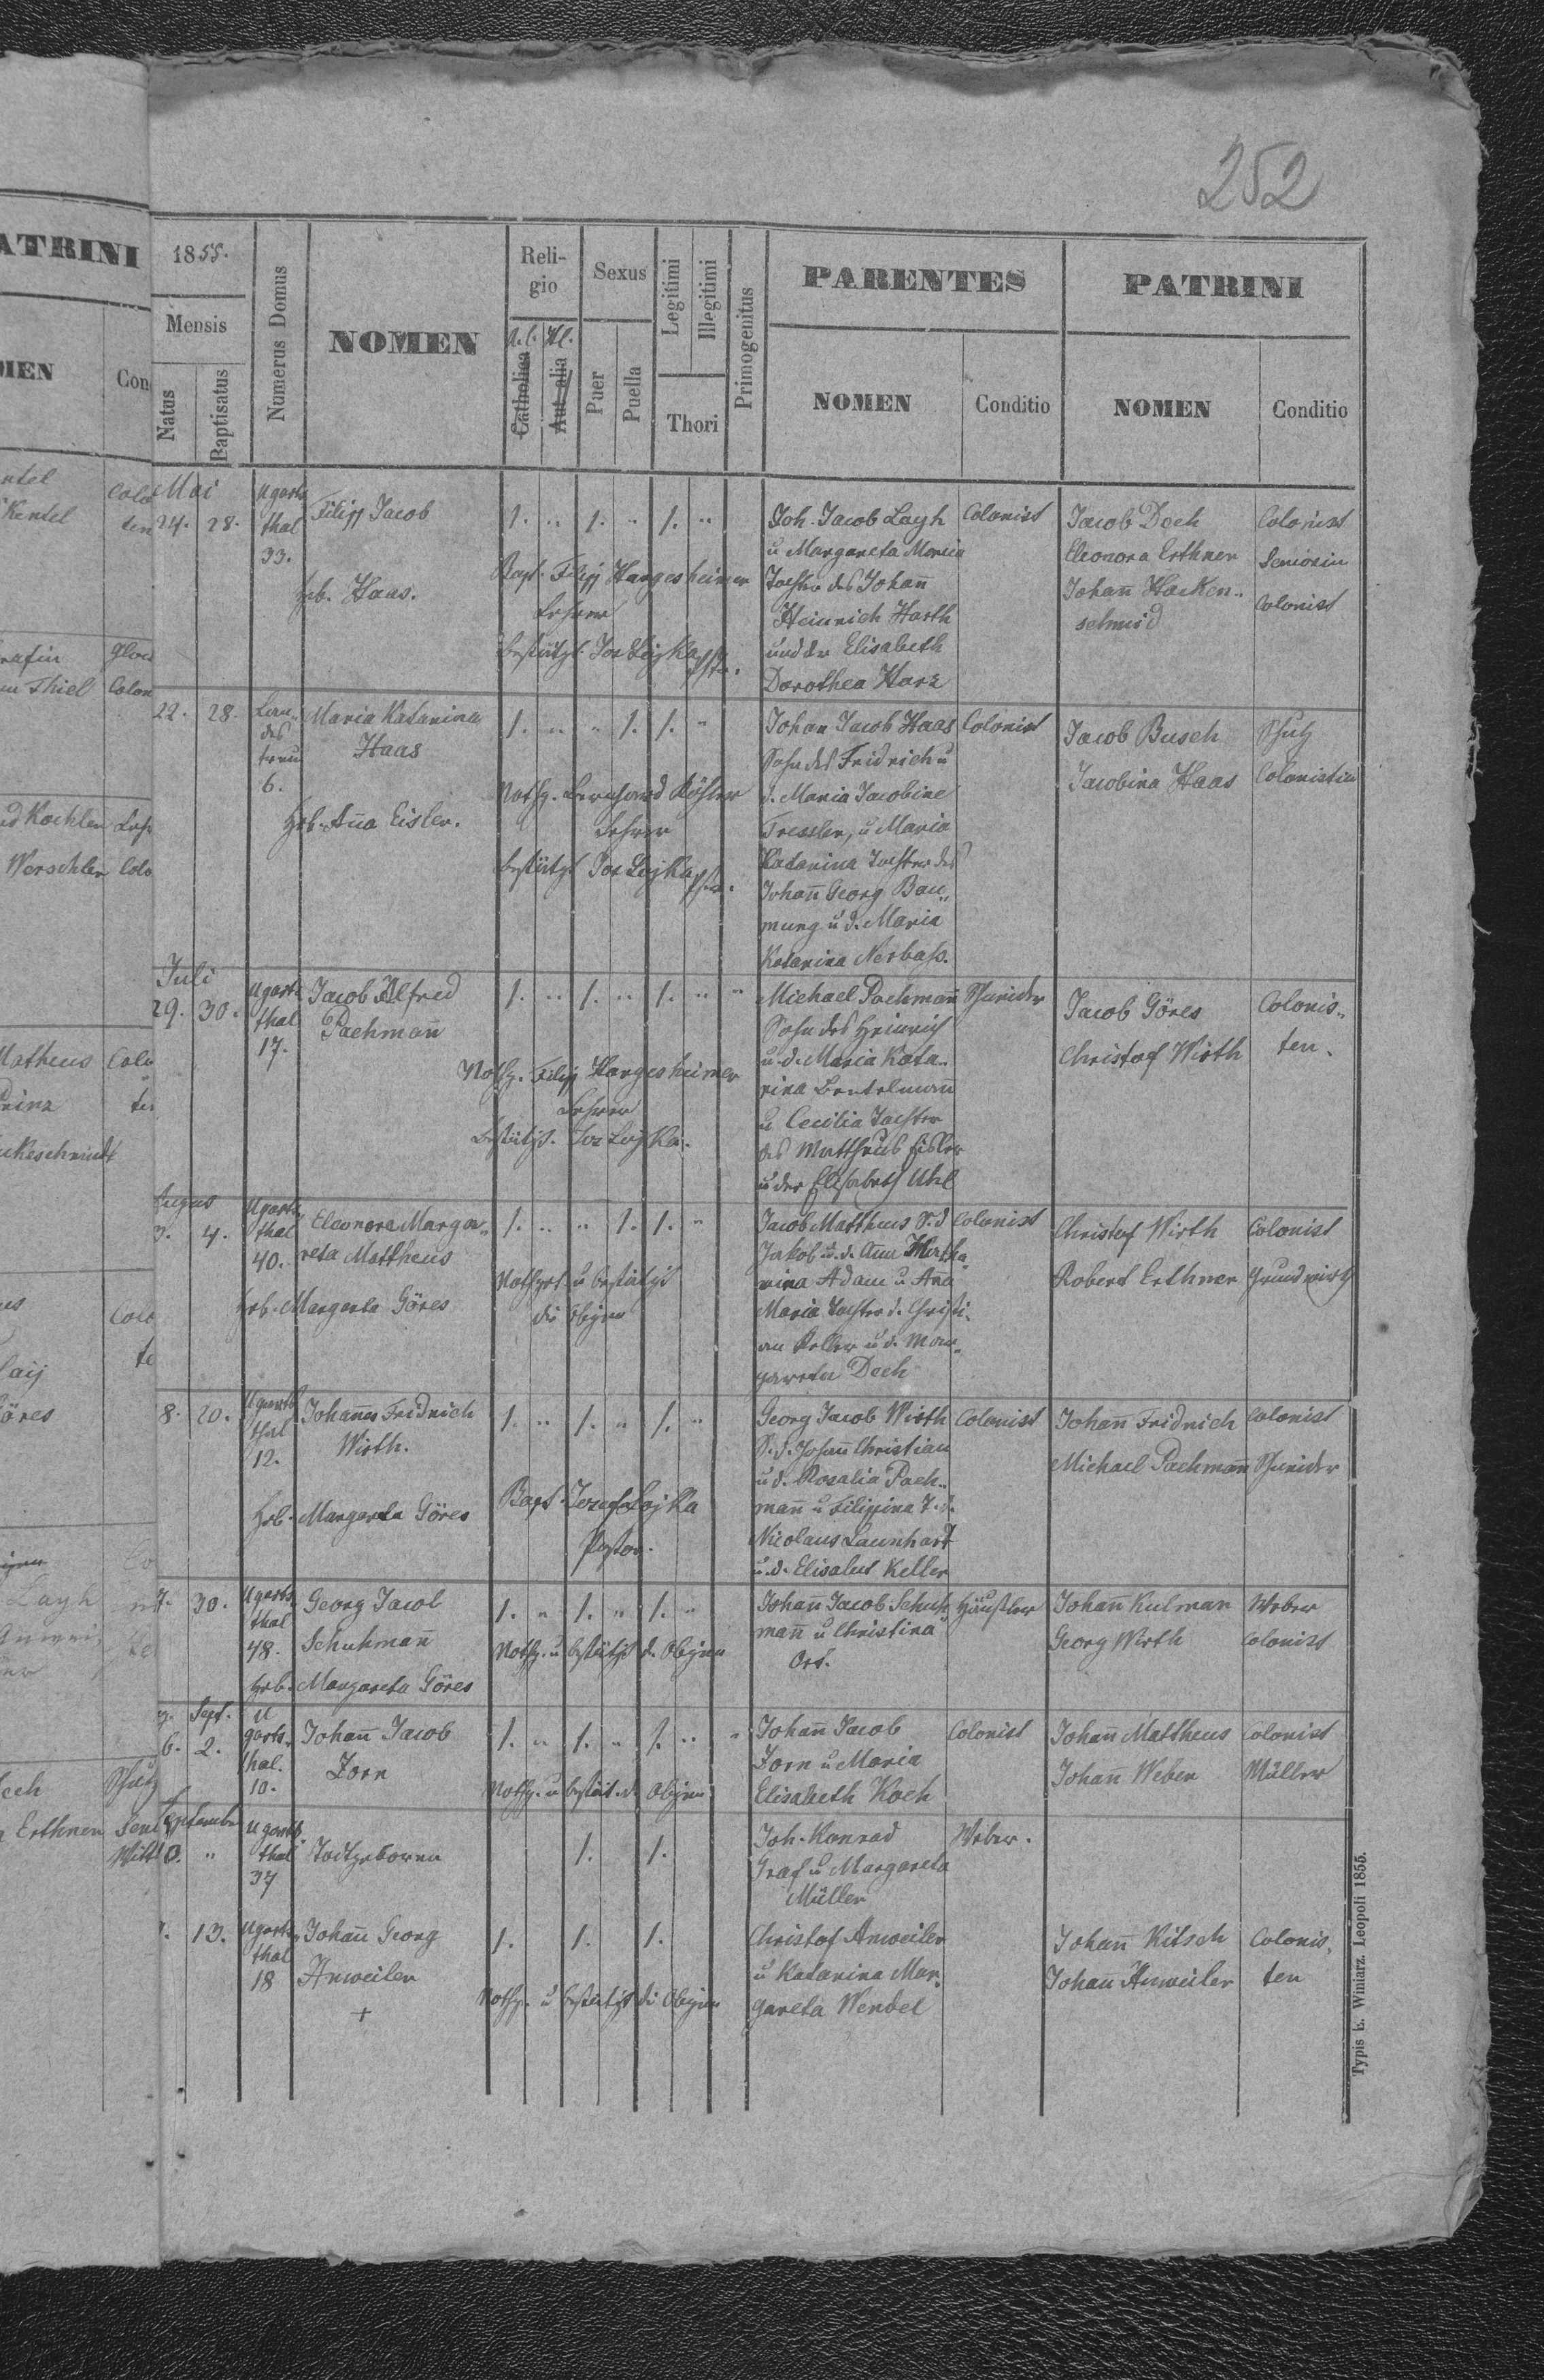 252
ATRINI
MEN
Con
1855.
Mensis
Natus
Baptisatus
Numerus Domus
NOMEN
Reli-
gio
A.C. H.C.
Catholica
Aut alia
Sexus
Puer
Puella
Legitimi
Illegitimi
Thori
Primogenitus
PARENTES
NOMEN
Conditio
PATRINI
NOMEN
Conditio
Mai
24. 28.
Ugarts
thal
33.
Filipp Jacob
heb. Haas.
1. „ 1. „ 1. „
Bapt. Filipp Hargesheimer
Lehrer
bestätigt Jos Lojka
Joh. Jacob Layh
u Margareta Maria
Tochter des Johann̄
Heinrich Harth
und der Elisabeth
Dorothea Harz
Colonist
Jacob Dech
Eleonora Erthner
Johann̄ Hacken-
schmid
Colonist
Seniorin
Colonist
22. 28.
Lan„
des
treu
6.
Maria Katarina
Haas
heb. An̄a Eisler.
1. „ „ 1. 1. „
Nothg. Bernhard Köhler
Lehrer
bestätigt Jos Lojka
Johan Jacob Haas
Sohn des Fridrich u
d. Maria Jacobine
Tressler, u Maria
Katarina Tochter des
Johann̄ Georg Bau„
mung u d. Maria
Katarina Nerbass.
Colonist
Jacob Busch
Jacobina Haas
Schulz
Colonistin
Juli
29. 30.
Ugarts
thal
17.
Jacob Alfred
Pachman̄
1. „ 1. „ 1. „ „
Nothg. Filipp Hargesheimer
Lehrer
Bestätigt. Jos Lojka.
Michael Pachman̄
Sohn des Heinrich
u. d. Maria Kata-
rina Bentelman̄
u Cecilia Tochter
des Mattheus Eisler
u der Elisabeth Uhl
Schneider
Jacob Göres
Christof Wirth
Colonis„
ten.
August
3. 4.
Ugarts
thal
40.
Eleonora Marga„
reta Mattheus
heb. Margareta Göres
1. „ „ 1. 1. „
Nothget. u bestätigt
die Obigen
Jacob Mattheus S. d
Jakob u. d. Anna Katha
rina Adam u An̄a
Maria Tochter d. Christi-
an Keller u d. Mar„
gareta Dech
Colonist
Christof Wirth
Robert Erthner
Colonist
Grundwirth
8. 20.
Ugarts
thal
12.
Johan̄es Fridrich
Wirth.
heb. Margareta Göres
1. „ 1. „ 1. „
Bapt. Josef Lojka
Pastor.
Georg Jacob Wirth
S. d. Johan̄ Christian
u d. Rosalia Pach-
man̄ u Filippina T. d.
Nicolaus Launhardt
u. d. Elisabet Keller
Colonist
Johan̄ Fridrich
Michael Pachman̄
Colonist
Schneider
7. 30.
Ugarts
thal
48.
Georg Jacob
Schuhman̄
heb. Margareta Göres
1. „ 1. „ 1. „
Nothg. u bestätigt d. Obigen
Johan̄ Jacob Schuh
man̄ u Christina
Ort.
Häusler
Johan̄ Kulman
Georg Wirth
Weber
Colonist
Sept.
6. 2.
U
garts„
thal.
10.
Johan̄ Jacob
Zorn
1. „ 1. „ 1. „ „
Nothg. u bestät. d. Obigen
Johan̄ Jacob
Zorn u Maria
Elisabeth Koch
Colonist
Johan̄ Mattheus
Johan̄ Weber
Colonist
Müller
September
Ugarts
thal
37
Todtgeboren
1. 1.
Joh. Konrad
Graf u Margareta
Müller
Weber.
13.
Ugarts„
thal
18
Johan̄ Georg
Anweiler
+
1. 1. 1.
Nothg. u bestätigt die Obigen
Christof Anweiler
u Katarina Mar„
gareta Wendel
Johan̄ Kitsch
Johan̄ Anweiler
Colonis„
ten
Typis E. Winiarz. Leopoli 1855.